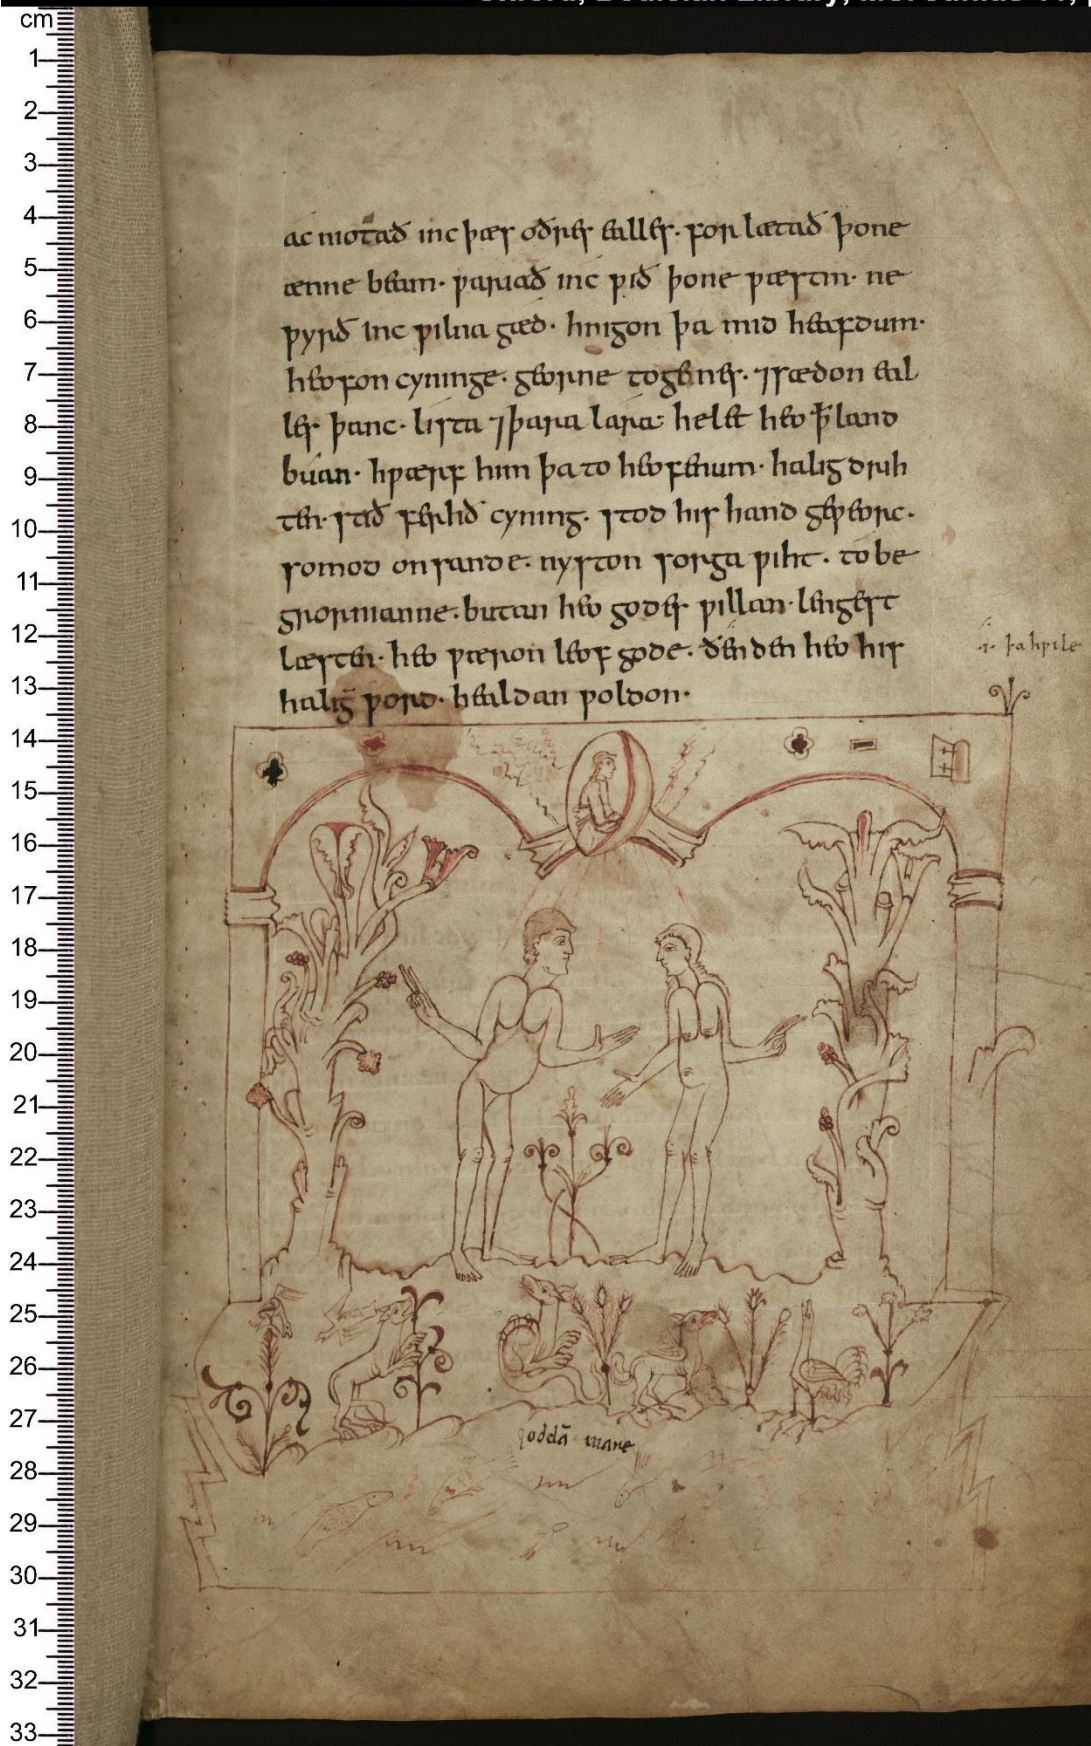 Oxford, Bodleian Library, MS. Junius 11, p
cm
1
2
3
4
5
6
7
8
9
10
11
12
13
14
15
16
17
18
19
20
21
22
23
24
25
26
27
28
29
30
31
32
33
ac niotað inc þæs oðres ealles· for lætað þone
ænne beam· ƿariað inc ƿið þone ƿæstm· ne
ƿyrð inc ƿilna gæd· hnigon þa mid heafdum·
heofon cyninge· georne togenes· ⁊sædon eal
les þanc· lista ⁊þara lara· he let heo ꝥ land
buan· hƿærf him þa to heofenum· halig drih
ten· stið ferhð cyning· stod his hand geƿeorc·
somod on sande· nyston sorga ƿiht· to be
grornianne· butan heo godes ƿillan· lengest
læsten· heo ƿæron leof gode· ðenden heo his
halig̅ ƿord· healdan ƿoldon·
·i· þa hƿile